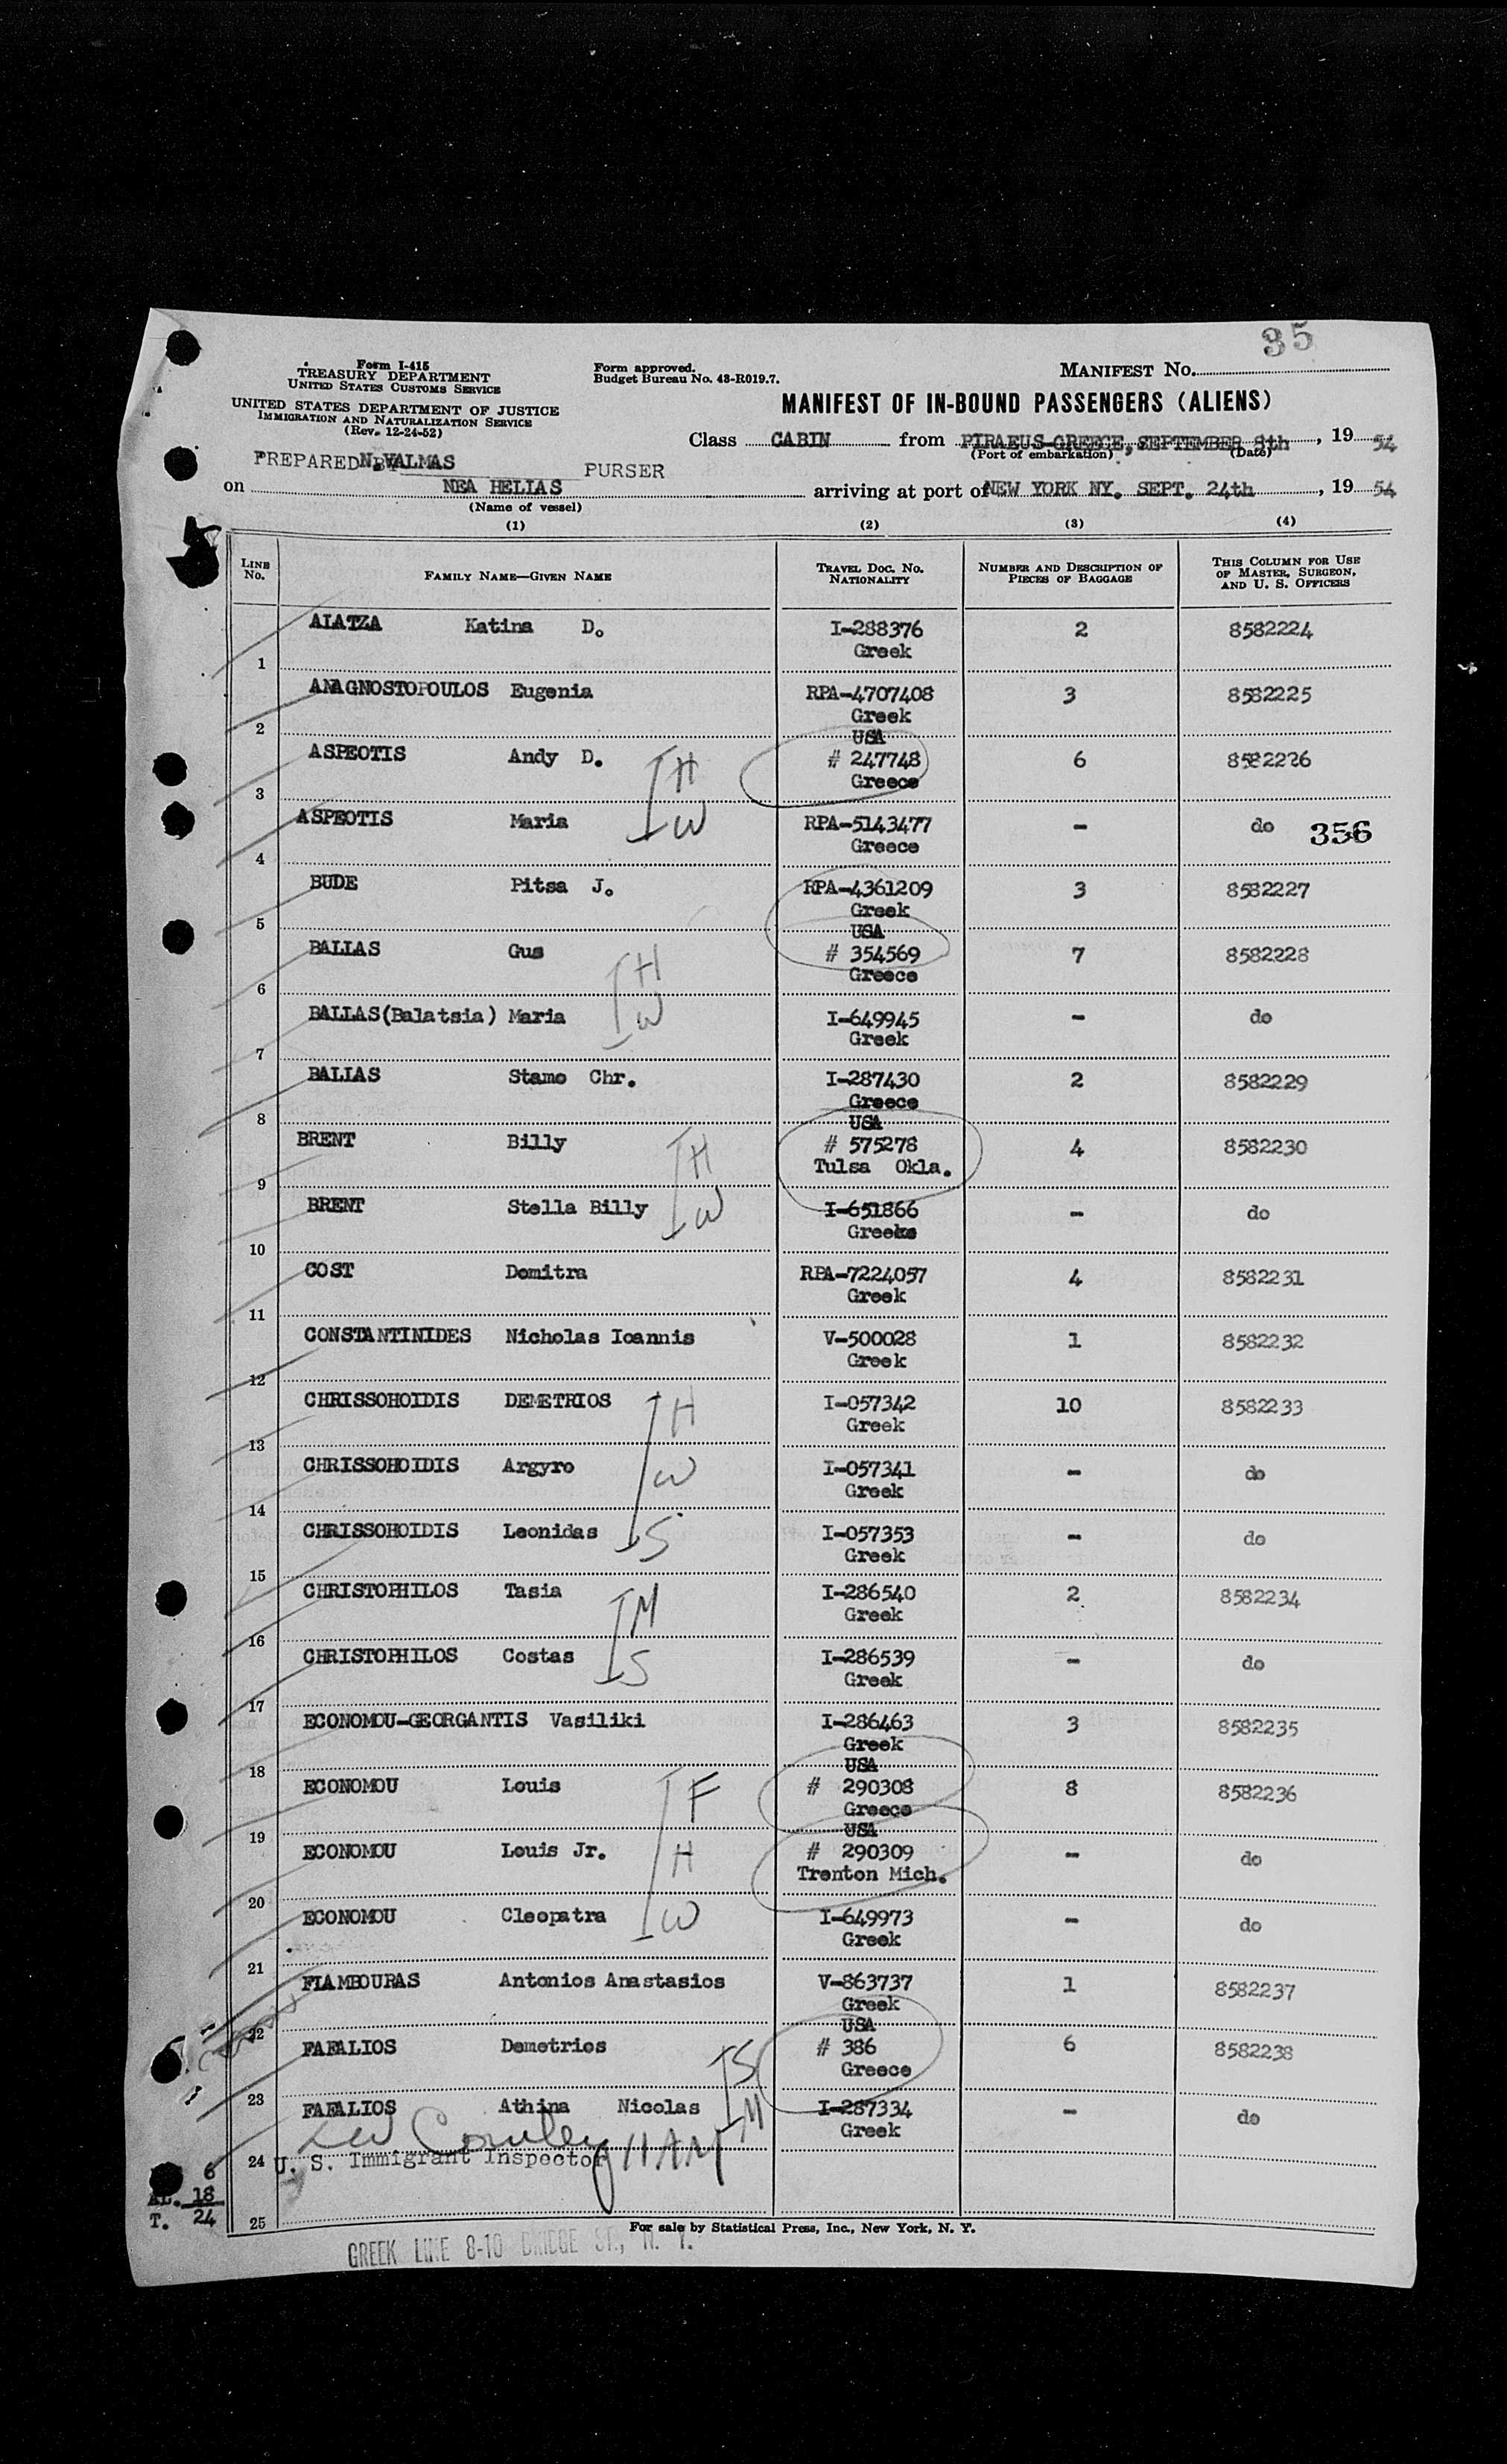 35
Form I-415
TREASURY DEPARTMENT
UNITED STATES CUSTOMS SERVICE
UNITED STATES DEPARTMENT OF JUSTICE
IMMIGRATION AND NATURALIZATION SERVICE
(Rev. 12-24-52)
Form approved.
Budget Bureau No. 43-R019.7.
MANIFEST NO.
MANIFEST OF IN-BOUND PASSENGERS (ALIENS)
Class CABIN from PIRAEUS-GREECE, SEPTEMBER 8th, 19 54
(Port of embarkation) (Date)
PREPARED BY N.VALMAS PURSER
on NEA HELIAS arriving at port of NEW YORK NY. SEPT. 24th, 19 54
(Name of vessel)
(1) (2) (3) (4)
LINE NO. FAMILY NAME—GIVEN NAME TRAVEL DOC. NO. NATIONALITY NUMBER AND DESCRIPTION OF PIECES OF BAGGAGE THIS COLUMN FOR USE OF MASTER, SURGEON, AND U. S. OFFICERS
ALATZA Katina D. I-288376 2 8582224
1 Greek
ANAGNOSTOPOULOS Eugenia RPA-4707408 3 8582225
2 Greek
USA
ASPEOTIS Andy D. H # 247748 6 8582226
3 Greece
ASPEOTIS Maria W RPA-5143477 - do 356
4 Greece
BUDE Pitsa J. RPA-4361209 3 8582227
5 Greek
USA
BALLAS Gus H # 354569 7 8582228
6 Greece
BALLAS(Balatsia) Maria W I-649945 - do
7 Greek
BALLAS Stamo Chr. I-287430 2 8582229
8 Greece
USA
BRENT Billy H # 575278 4 8582230
9 Tulsa Okla.
BRENT Stella Billy W I-651866 - do
10 Greek
COST Demitra RPA-7224057 4 8582231
11 Greek
CONSTANTINIDES Nicholas Ioannis V-500028 1 8582232
12 Greek
CHRISSOHOIDIS DEMETRIOS H I-057342 10 8582233
13 Greek
CHRISSOHOIDIS Argyro W I-057341 - do
14 Greek
CHRISSOHOIDIS Leonidas S I-057353 - do
15 Greek
CHRISTOPHILOS Tasia M I-286540 2 8582234
16 Greek
CHRISTOPHILOS Costas S I-286539 - do
17 Greek
ECONOMOU-GEORGANTIS Vasiliki I-286463 3 8582235
18 Greek
USA
ECONOMOU Louis F # 290308 8 8582236
19 Greece
USA
ECONOMOU Louis Jr. H # 290309 - do
20 Trenton Mich.
ECONOMOU Cleopatra W I-649973 - do
21 Greek
FIAMBOURAS Antonios Anastasios V-863737 1 8582237
22 Greek
USA
FAFALIOS Demetrios S # 386 6 8582238
23 Greece
FAFALIOS Athina Nicolas M I-287334 - do
Greek
24 U. S. Immigrant Inspector
6
AL. 18
T. 24
25
For sale by Statistical Press, Inc., New York, N. Y.
GREEK LINE 8-10 BRIDGE ST., N. Y.